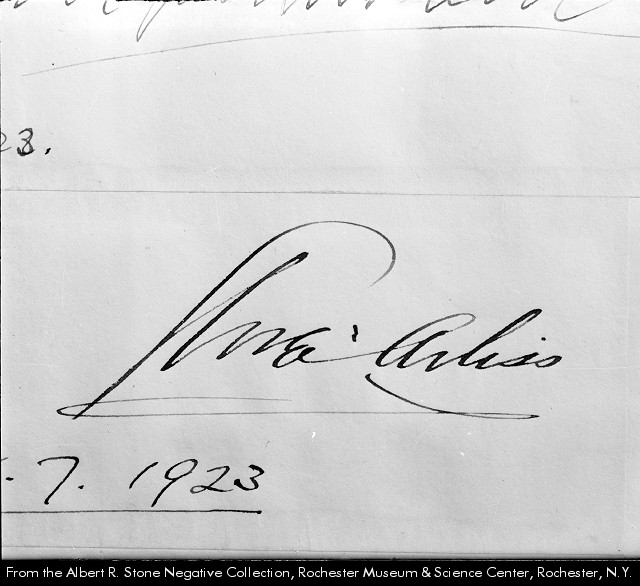 23.
Arliss
. 7. 1923
From the Albert R. Stone Negative Collection, Rochester Museum & Science Center, Rochester, N.Y.